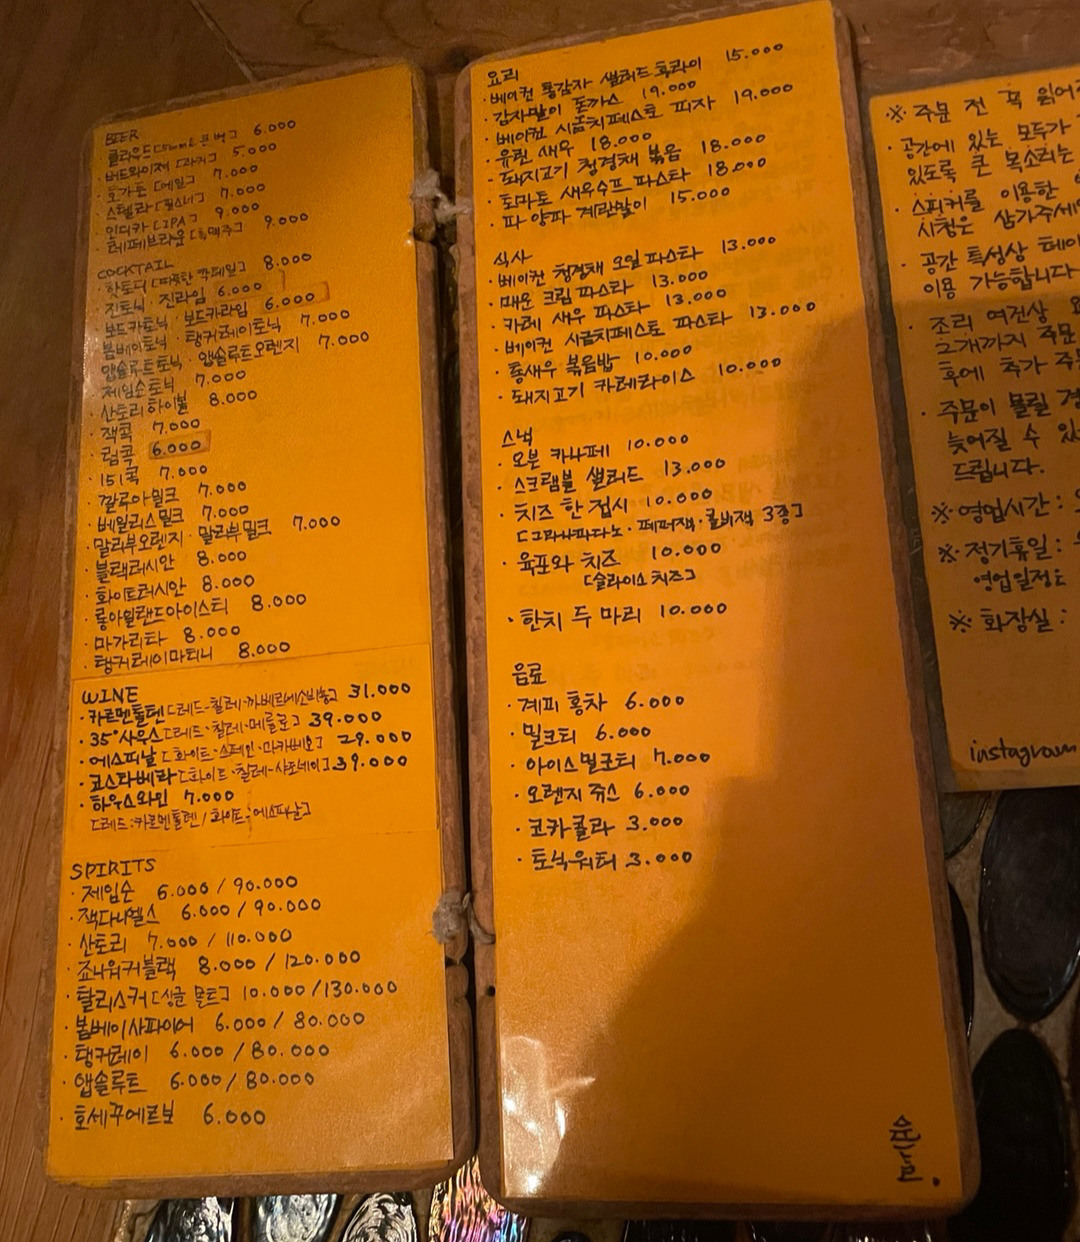 BEER
클라우드[500ml 큰 병] 6.000
버드와이저 [라거] 5.000
호가든 [에일] 7.000
스텔라 [필스너] 7.000
인디카 [IPA] 9.000
레페브라운 [흑맥주] 9.000
COCKTAIL
핫토디 [따뜻한 칵테일] 8.000
진토닉 · 진라임 6.000
보드카토닉 · 보드카라임 6.000
봄베이토닉 · 탱커레이토닉 7.000
앱솔루트토닉 · 앱솔루트오렌지 7.000
제임슨토닉 7.000
산토리 하이볼 8.000
· 잭콕 7.000
· 럼콕 6.000
· 151콕 7.000
· 깔루아밀크 7.000
· 베일리스밀크 7.000
· 말리부오렌지 · 말리부밀크 7.000
· 블랙러시안 8.000
· 화이트러시안 8.000
· 롱아일랜드아이스티 8.000
· 마가리타 8.000
· 탱커레이마티니 8.000
WINE
· 카르멘톨텐[레드-칠레-까베르네소비뇽] 31.000
· 35°사우스[레드·칠레·메를로] 39.000
· 에스피날 [화이트·스페인·마카베오] 29.000
· 코스타베라[화이트·칠레-샤도네이] 39.000
· 하우스와인 7.000
[레드:카르멘톨텐 / 화이트:에스피날]
SPIRITS
· 제임슨 6.000 / 90.000
· 잭다니엘스 6.000 / 90.000
· 산토리 7.000 / 110.000
· 죠니워커블랙 8.000 / 120.000
· 탈리스커 [싱글 몰트] 10.000 / 130.000
· 봄베이사파이어 6.000 / 80.000
· 탱커레이 6.000 / 80.000
· 앱솔루트 6.000 / 80.000
· 호세쿠에르보 6.000
요리
· 베이컨 통감자 샐러드 후라이 15.000
· 감자말이 돈까스 19.000
· 베이컨 시금치페스토 피자 19.000
· 유린 새우 18.000
· 돼지고기 청경채 볶음 18.000
· 토마토 새우수프 파스타 18.000
· 파 양파 계란말이 15.000
식사
· 베이컨 청경채 오일 파스타 13.000
· 매운 크림 파스타 13.000
· 카레 새우 파스타 13.000
· 베이컨 시금치페스토 파스타 13.000
· 통새우 볶음밥 10.000
· 돼지고기 카레라이스 10.000
스낵
· 오븐 카나페 10.000
· 스크램블 샐러드 13.000
· 치즈 한 접시 10.000
[그라나파다노 · 페퍼잭 · 콜비잭 3종]
· 육포와 치즈 10.000
[슬라이스 치즈]
· 한치 두 마리 10.000
음료
· 계피 홍차 6.000
· 밀크티 6.000
· 아이스 밀크티 7.000
· 오렌지 쥬스 6.000
· 코카콜라 3.000
· 토닉워터 3.000
※ 주문 전 꼭 읽어
· 공간에 있는 모두가
있도록 큰 목소리는
· 스피커를 이용한
시청은 삼가주세
· 공간 특성상 테이
이용 가능합니다
· 조리 여건상
2개까지 주문
후에 추가 주
· 주문이 몰릴 경
늦어질 수 있
드립니다.
※ 영업시간 :
※ 정기휴일 :
영업일정은
※ 화장실 :
instagram